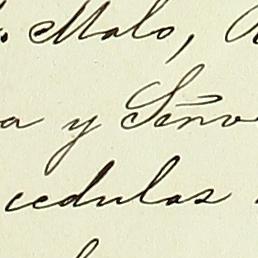 . Malo,
a y Seño
cedulas